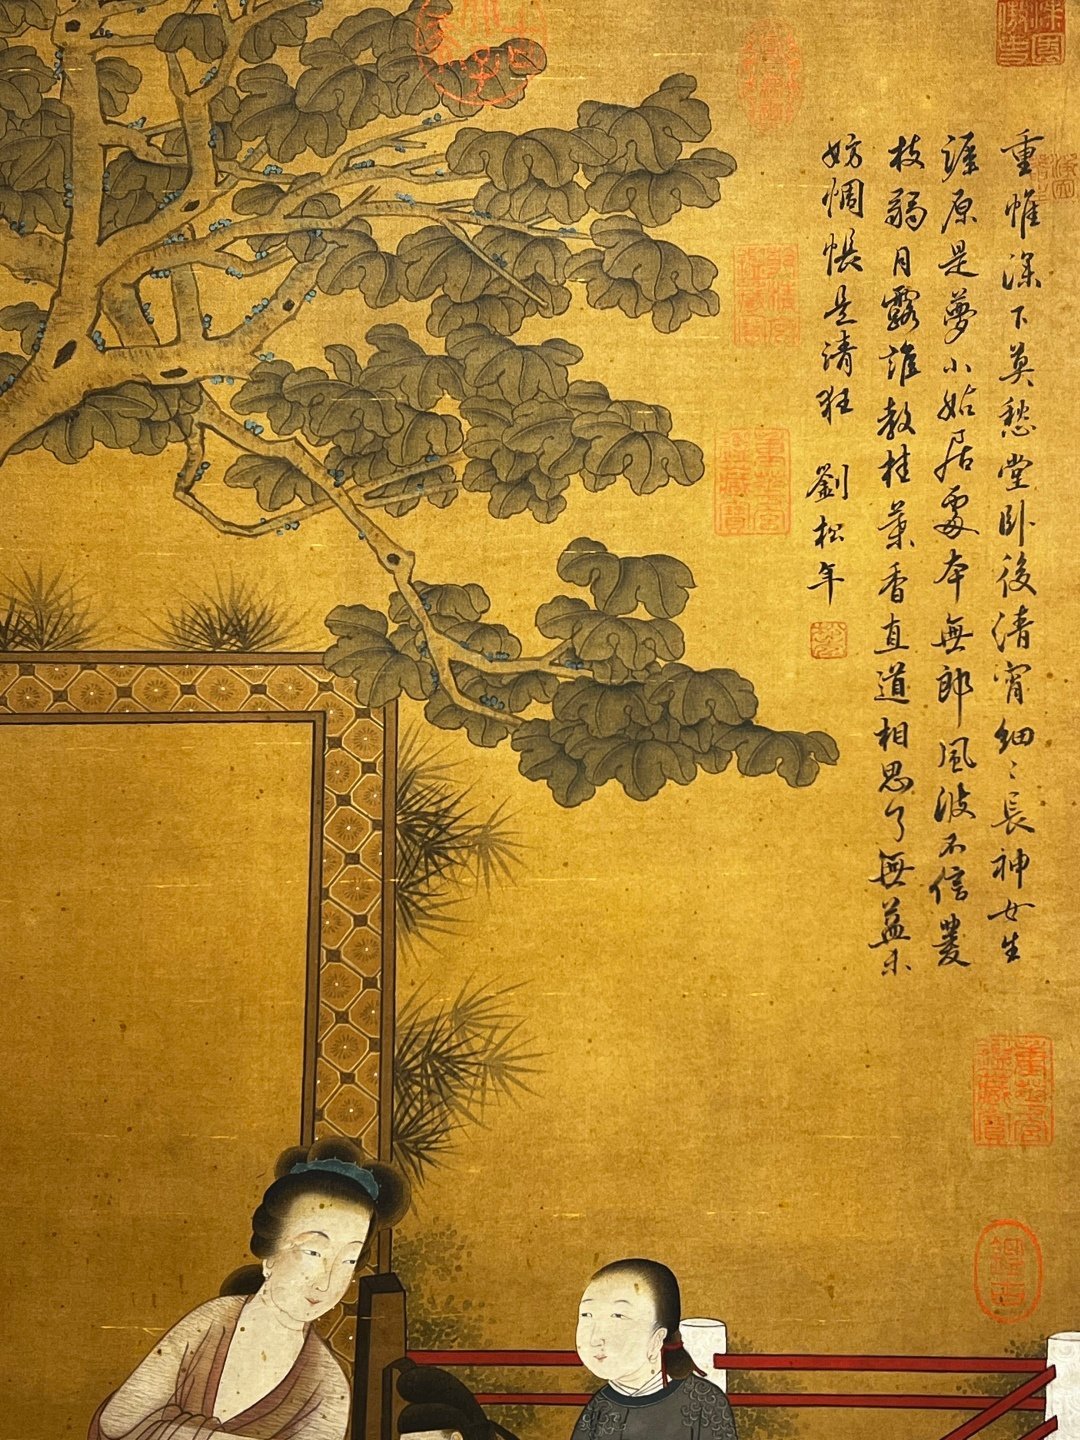 重帷深下莫愁堂卧後清宵細〻長神女生
涯原是夢小姑居處本無郎風波不信菱
枝弱月露誰教桂葉香直道相思了無益未
妨惆悵是清狂 劉松年